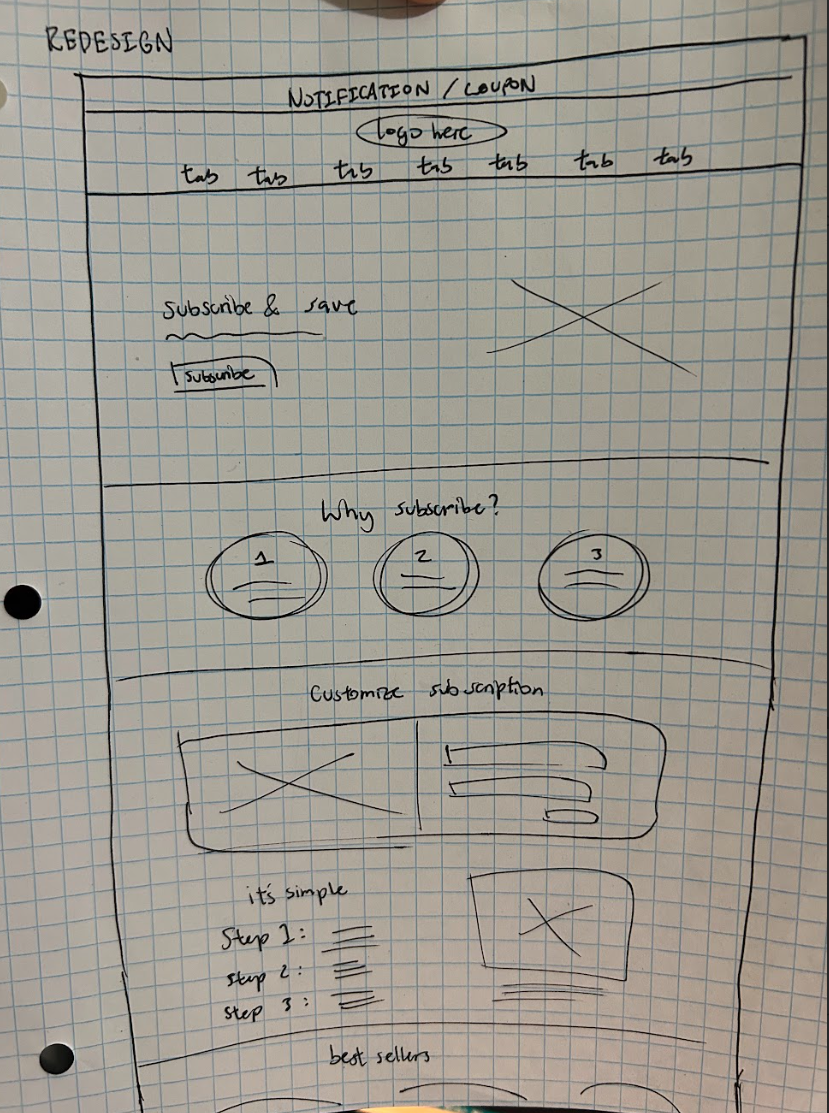 REDESIGN
NOTIFICATION / COUPON
logo here
tab tab tab tab tab tab tab
Subscribe & save
subscribe
Why subscribe?
1 2 3
Customize subscription
it's simple
Step 1:
step 2:
step 3:
best sellers